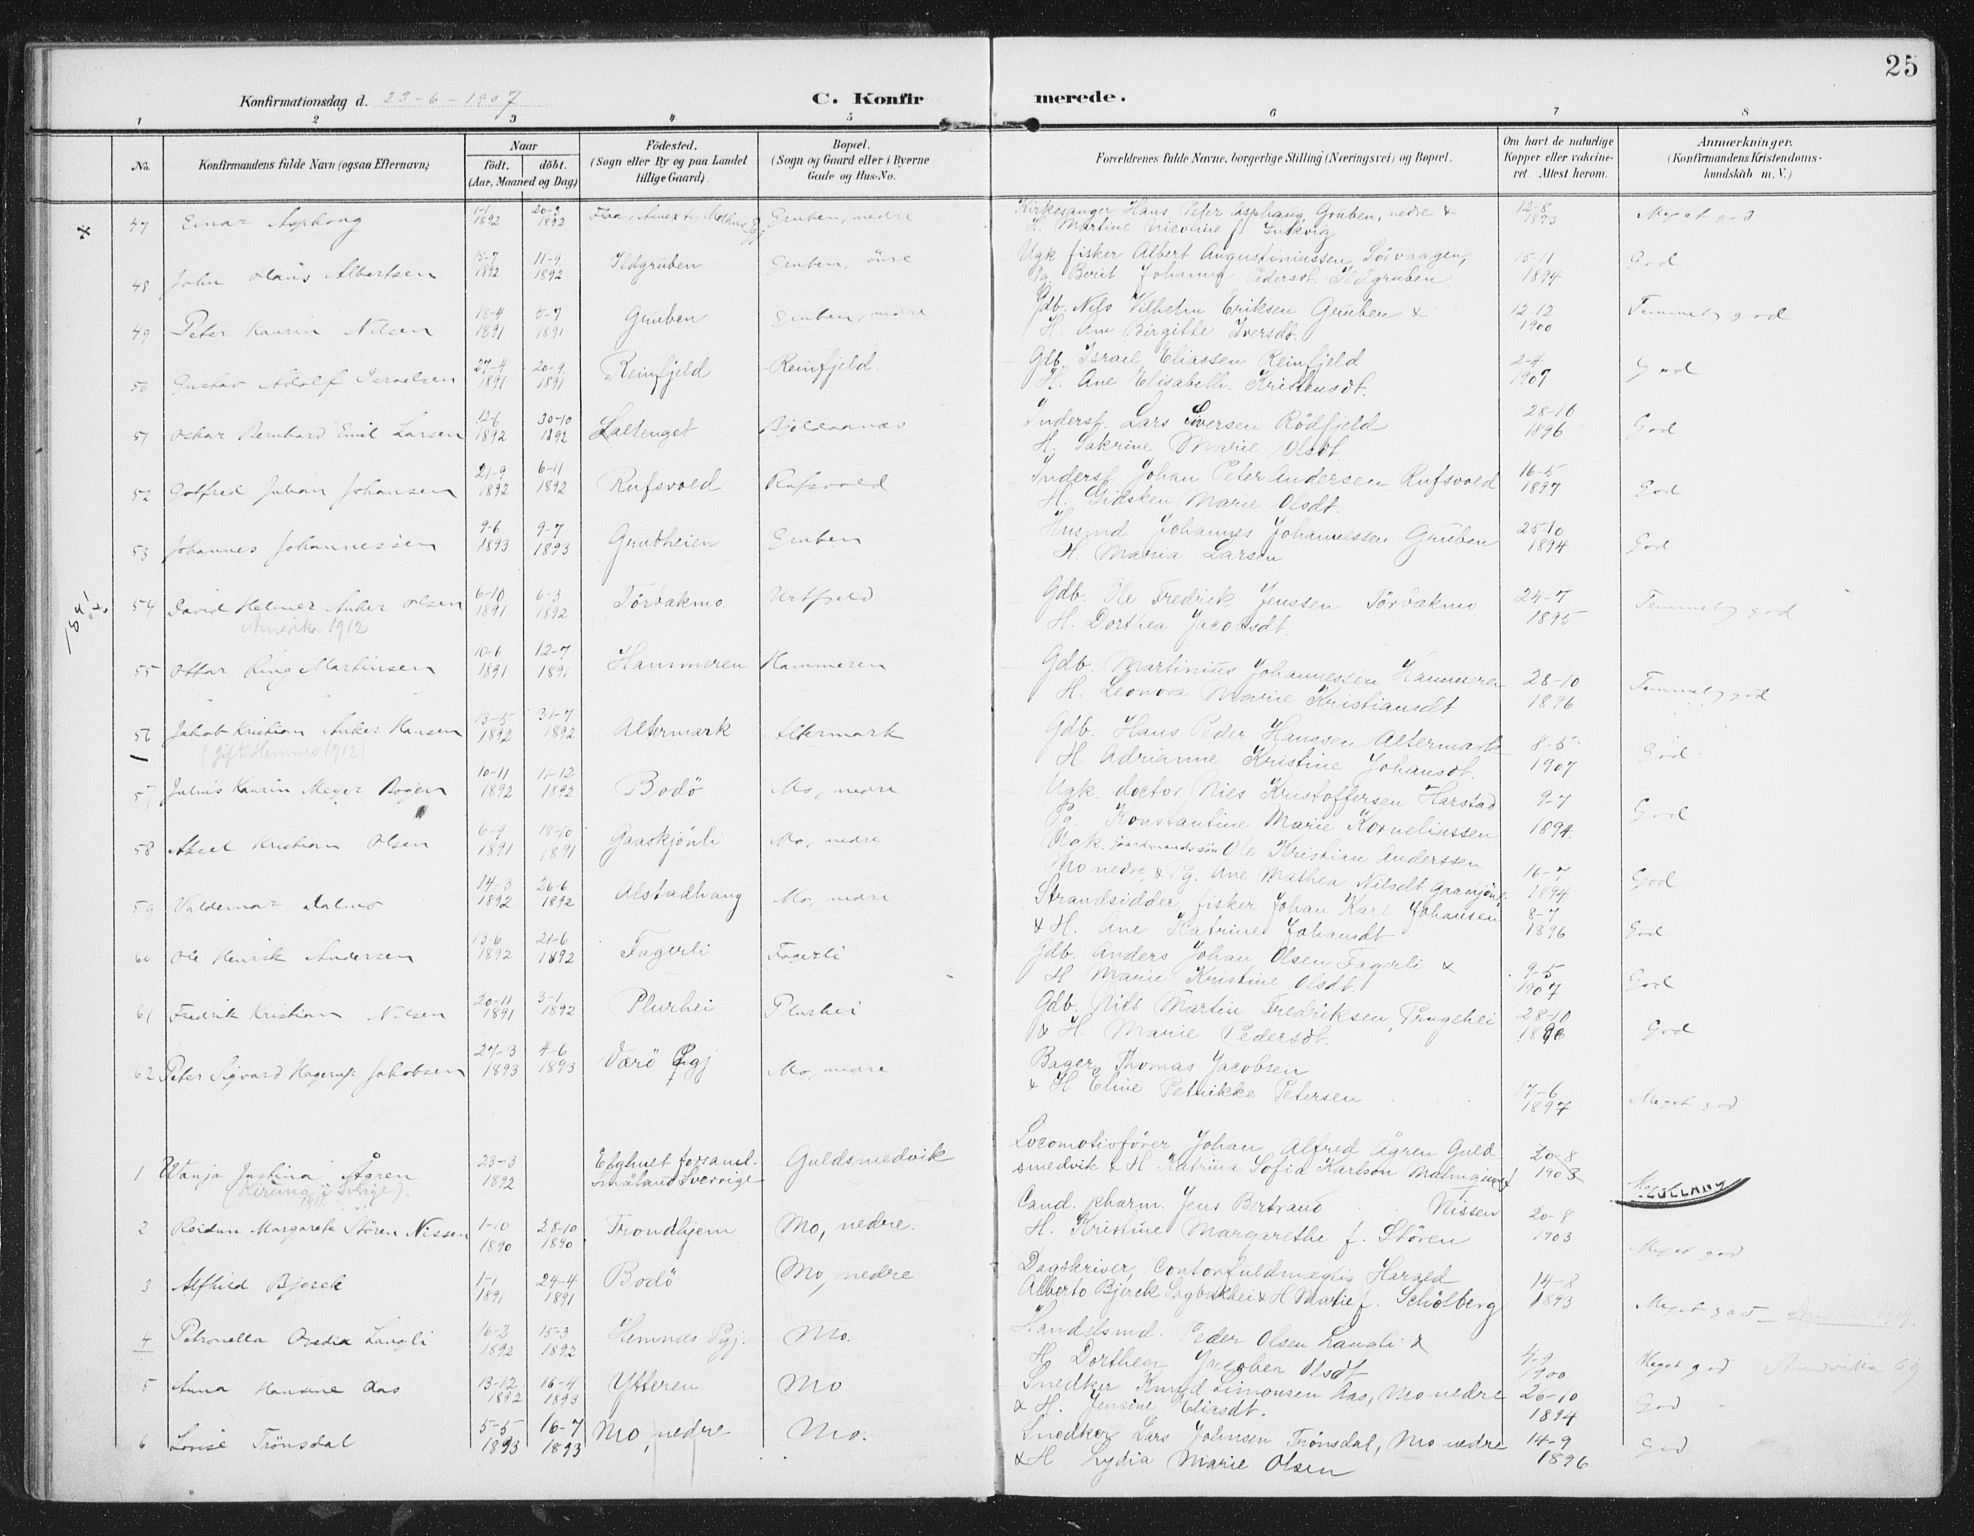 25
Konfirmationsdag d. 23-6-1907 C. Konfirmerede.
1 2 3 4 5 6 7 8
No. Konfirmandens fulde Navn (ogsaa Efternavn) Naar født. døbt. (Aar, Maaned og Dag) Födested. (Sogn eller By og paa Landet tillige Gaard). Bopæl. (Sogn og Gaard eller i Byerne Gade og Hus-No. Forældrenes fulde Navne, borgerlige Stilling (Næringsvei) og Bopæl. Om havt de naturlige Kopper eller vakcineret. Attest herom. Anmærkninger. (Konfirmandens Kristendomskundskab m. V.)
47 Einar Asphaug 1-1 1892 20-3 1892 Gruben, nedre Kirkesanger Hans Peter Asphaug, Gruben, nedre & H. Martine Nicoline f. 12-8 1893 Meget god
48 John Olaus Albertsen 15-7 1892 11-9 1892 Ildgruben Gruben, övre Ugk fisker Albert Augustinussen, Sörvaagen, Pg Berit Johanna Pedersdt Ildgruben 15-11 1894 God
49 Peter Kaurin Nilsen 18-4 1891 5-7 1891 Gruben Gruben, nedre Gdb. Nils Vilhelm Eriksen Gruben & H. Ane Birgitte Iversdt. 12-12 1900 Temmelig god
50 Gustav Adolf Israelsen 27-4 1891 20-9 1891 Reinfjeld Reinfjeld. Gdb. Israel Eliassen Reinfjeld H. Ane Elisabeth Kristensdt. 2-4 1907 God
51 Oskar Bernhard Emil Larsen 12-6 1892 30-10 1892 Saltenget Bjeldaanæs Inderst. Lars Iversen Rödfjeld H. Sakrine Marie Olsdt. 28-10 1896 God
52 Gotfred Julian Johansen 21-9 1892 6-11 1892 Rufsvold Rufsvold Inderst. Johan Peter Andersen Rufsvold H. Gidsken Marie Olsdt. 16-5 1897 God
53 Johannes Johannessen 9-6 1893 9-7 1893 Grubheien Gruben Husmd Johannes Johannessen Gruben H. Maria Larsen 25-10 1894 God
54 David Helmer Anker Olsen 6-10 1891 6-3 1892 Törbakmo Urtfjeld Gdb. Ole Fredrik Jenssen Törbakmo H. Dorthea Jacobsdt. 24-7 1895 Temmelig god
Amerika 1912
55 Ottar Ring Martinsen 10-6 1891 12-7 1891 Hammeren Hammeren Gdb. Martinius Johannessen Hammeren H. Leonora Marie Kristiansdt 28-10 1896 Temmelig god
56 Jakob Kristian Anker Hansen 13-5 1892 31-7 1892 Altermark Altermark Gdb. Hans Peder Hanssen Altermark H. Adrianne Kristine Johansdt. 8-5 1907 God
(gift Hemnes 1912)
57 Julius Kaurin Meyer Bogen 10-11 1892 11-12 1892 Bodö Mo, nedre Ugk. doctor Nils Kristoffersen Harstad Pg. Konstantine Marie Korneliussen 9-7 1894. God
58 Aksel Kristian Olsen 6-9 1891 18-10 1891 Gaaskjönli Mo, nedre Ugk. Gaardmandssön Ole Kristian Anderssen Mo nedre, & Pg. Ane Mathea Nilsdt 16-7 1894 God
59 Valdemar Dalmo 14-3 1892 26-6 1892 Alstadhaug Mo, nedre Strandsidder, fisker Johan Karl Johansen & H. Ane Katrine Johansdt 8-7 1896 God
60 Ole Henrik Andersen 13-6 1892 21-6 1892 Fagerli Fagerli Gdb. Anders Johan Olsen Fagerli & H Marie Kristine Olsdt. 9-5 1907 God
61 Fredrik Kristian Nilsen 20-11 1891 3-1 1892 Plurhei Plurhei Gdb. Nils Martin Fredriksen, & H. Marie Pedersdt. 28-10 God
62 Peter Sigvard Hagerup Jakobsen 27-3 1893 4-6 1893 Værö Pgj Mo, nedre Bager Thomas Jacobsen & H Eline Petrikke Petersen 17-6 1897 Meget god
1 Wanja Justina Ågren 23-3 1892 Småland Sverrige Guldsmedvik Locomotivförer Johan Alfred Ågren Guldsmedvik & H Katrina Sofia Karlson 20-8 1903 Meget
(Kiruna i Sverige).
2 Reidun Margarete Stören Nissen 1-10 1890 28-10 1890 Trondhjem Mo, nedre. Cand. pharm. Jens Bertrand Nissen H. Kristine Margarethe f. Stören 20-8 1903 Meget god
3 Alfhild Bjerck 1-1 1891 24-4 1891 Bodö Mo, nedre Dagskriver, Contorfuldmægtig Harald Alberto Bjerck Sagbakhei & H Marie f. Schölberg 14-8 1893 Meget god
4 Petronella Opedia Langli 16-2 1892 15-3 1892 Hemnæs Pgj. Mo. Handelsmd. Peder Olsen Langli & H. Dorthea Jacobea Olsdt 4-9 1900 Meget god
5 Anna Hansine Aas 13-12 1892 16-4 1893 Ytteren Mo Snedker Knud Simonsen Aas, Mo nedre & H. Jensine Eliasdt. 20-10 1894 God
6 Lovise Trönsdal 5-5 1893 16-7 1893 Mo, nedre Mo. Snedker Lars Johnsen Trönsdal, Mo nedre & H Lydia Marie Olsen 14-9 1896 God